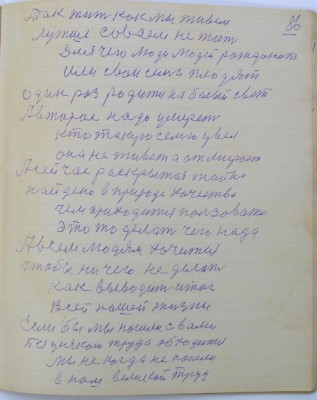 86
Так жит как мы живем
Лутше совсем не жит
Для чего люди людей рождают
Или свои семь плодят
один раз родится на белый свет
А второе надо умерет
кто такую семью увел
она не живет а отмирает
А сейчас раскрытая тайна
найдено в природе качество
чем приходится ползоватся
Это то делат чего нада
А всем людям хочется
чтобы ничего не делат
Как выводит итог
Всей нашей жизни
Если бы мы пошли с вами
Без всякого труда обходится
мы не когда не пошли
в нам великой труд